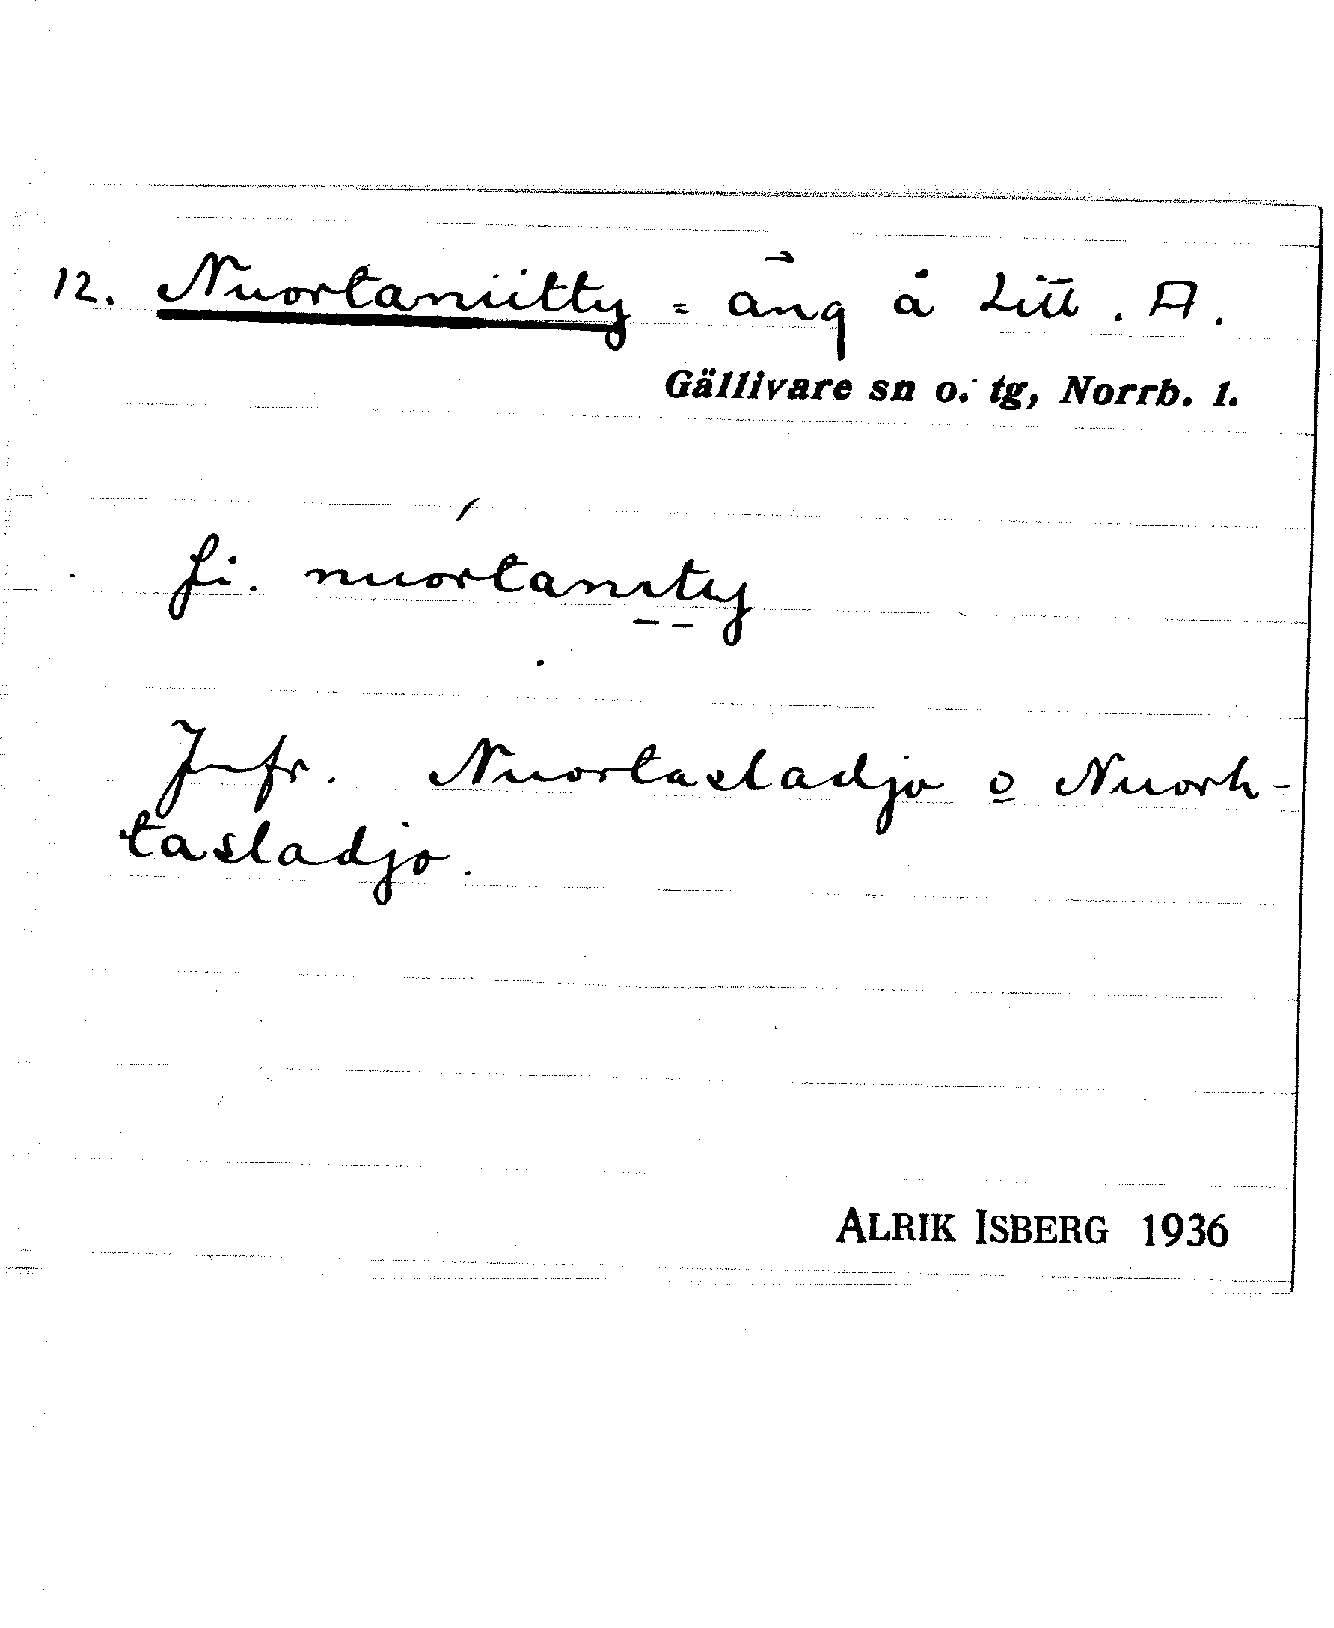 12. Nuortaniitty = äng å Litt. A.
Gällivare sn o. tg, Norrb. l.
fi. nuortanity
Jmfr. Nuortasladjo o Nuorh-
tasladjo.
ALRIK ISBERG 1936